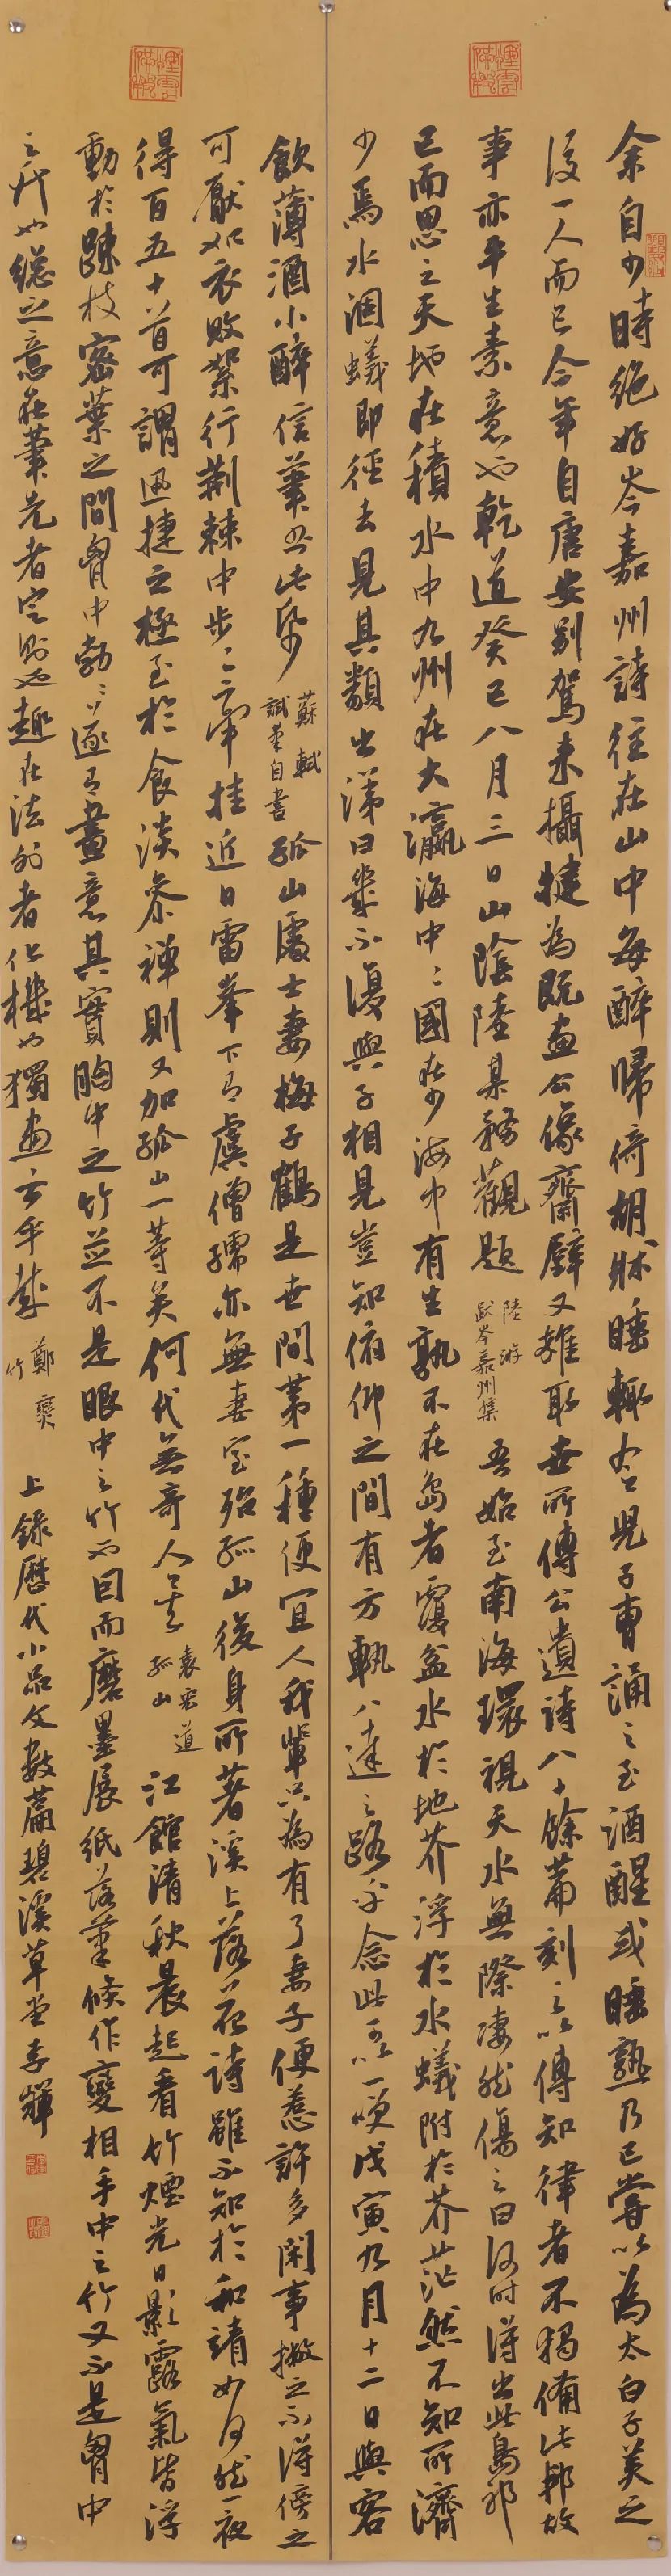 余自少時絕好岑嘉州詩往在山中每醉歸倚胡牀睡輒令兒子曹誦之至酒醒或睡熟乃已嘗以為太白子美之
後一人而已今年自唐安別駕來攝犍為既畫公像齋壁又雜取世所傳公遺詩八十餘篇刻之以傳知律者不獨備此邦故
事亦平生素意也乾道癸巳八月三日山陰陸某務觀題
陸游
跋岑嘉州集
吾始至南海環視天水無際淒然傷之曰何時得出此島邪
已而思之天地在積水中九州在大瀛海中中國在少海中有生孰不在島者覆盆水於地芥浮於水蟻附於芥茫然不知所濟
少焉水涸蟻即徑去見其類出涕曰幾不復與子相見豈知俯仰之間有方軌八達之路乎念此可以一笑戊寅九月十二日與客
飲薄酒小醉信筆書此紙
蘇軾
試筆自書
孤山處士妻梅子鶴是世間第一種便宜人我輩只為有了妻子便惹許多閑事撇之不得傍之
可厭如衣敗絮行荊棘中步步牽掛近日雷峯下有虞僧孺亦無妻室殆孤山後身所著溪上落花詩雖不知於和靖如何然一夜
得百五十首可謂迅捷之極至於食淡參禪則又加孤山一等矣何代無奇人哉
袁宏道
孤山
江館清秋晨起看竹煙光日影露氣皆浮
動於疎枝密葉之間胷中勃勃遂有畫意其實胸中之竹並不是眼中之竹也因而磨墨展紙落筆倏作變相手中之竹又不是胷中
之竹也總之意在筆先者定則也趣在法外者化機也獨畫云乎哉
鄭燮
竹
上錄歷代小品文數篇碧溪草堂李輝